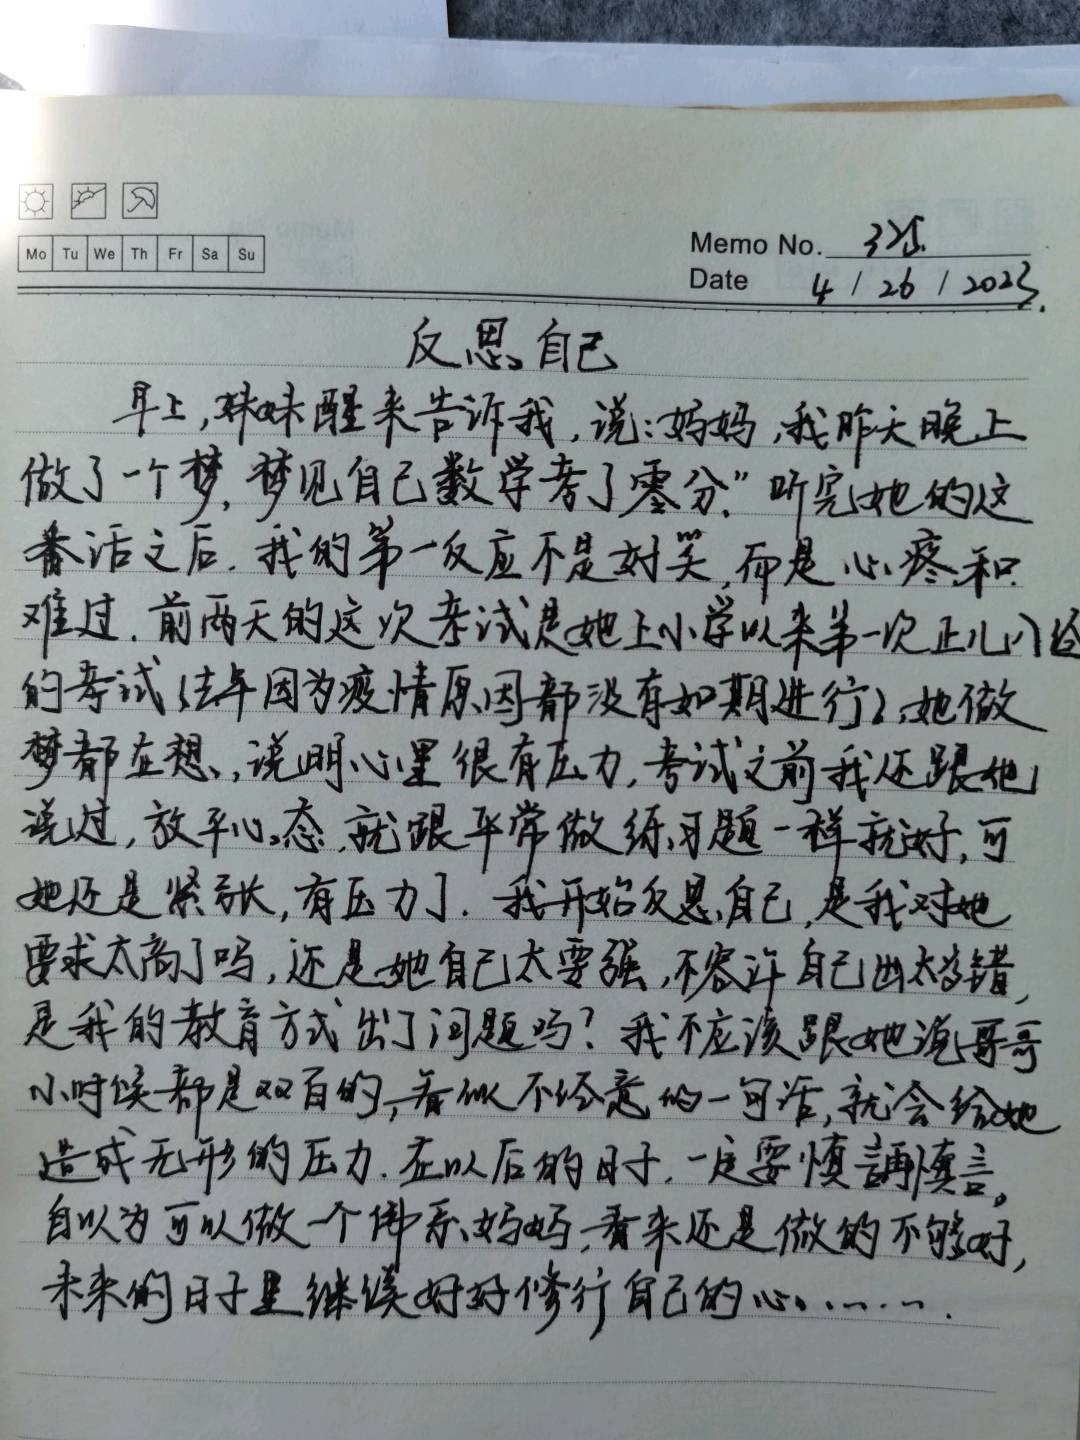 Mo Tu We Th Fr Sa Su
Memo No. 325.
Date 4 / 26 / 2023.
反思自己
早上,妹妹醒来告诉我,说:妈妈,我昨天晚上
做了一个梦,梦见自己数学考了零分."听完她的这
番话之后.我的第一反应不是好笑,而是心疼和
难过.前两天的这次考试是她上小学以来第一次正儿八经
的考试(去年因为疫情原因都没有如期进行),她做
梦都在想,说明心里很有压力,考试之前我还跟她
说过,放平心态,就跟平常做练习题一样就好,可
她还是紧张,有压力了.我开始反思自己,是我对她
要求太高了吗,还是她自己太要强,不容许自己出太多错,
是我的教育方式出了问题吗?我不应该跟她说哥哥
小时候都是双百的,看似不经意的一句话,就会给她
造成无形的压力.在以后的日子,一定要慎言再慎言。
自以为可以做一个佛系妈妈,看来还是做的不够好,
未来的日子里继续好好修行自己的心.......